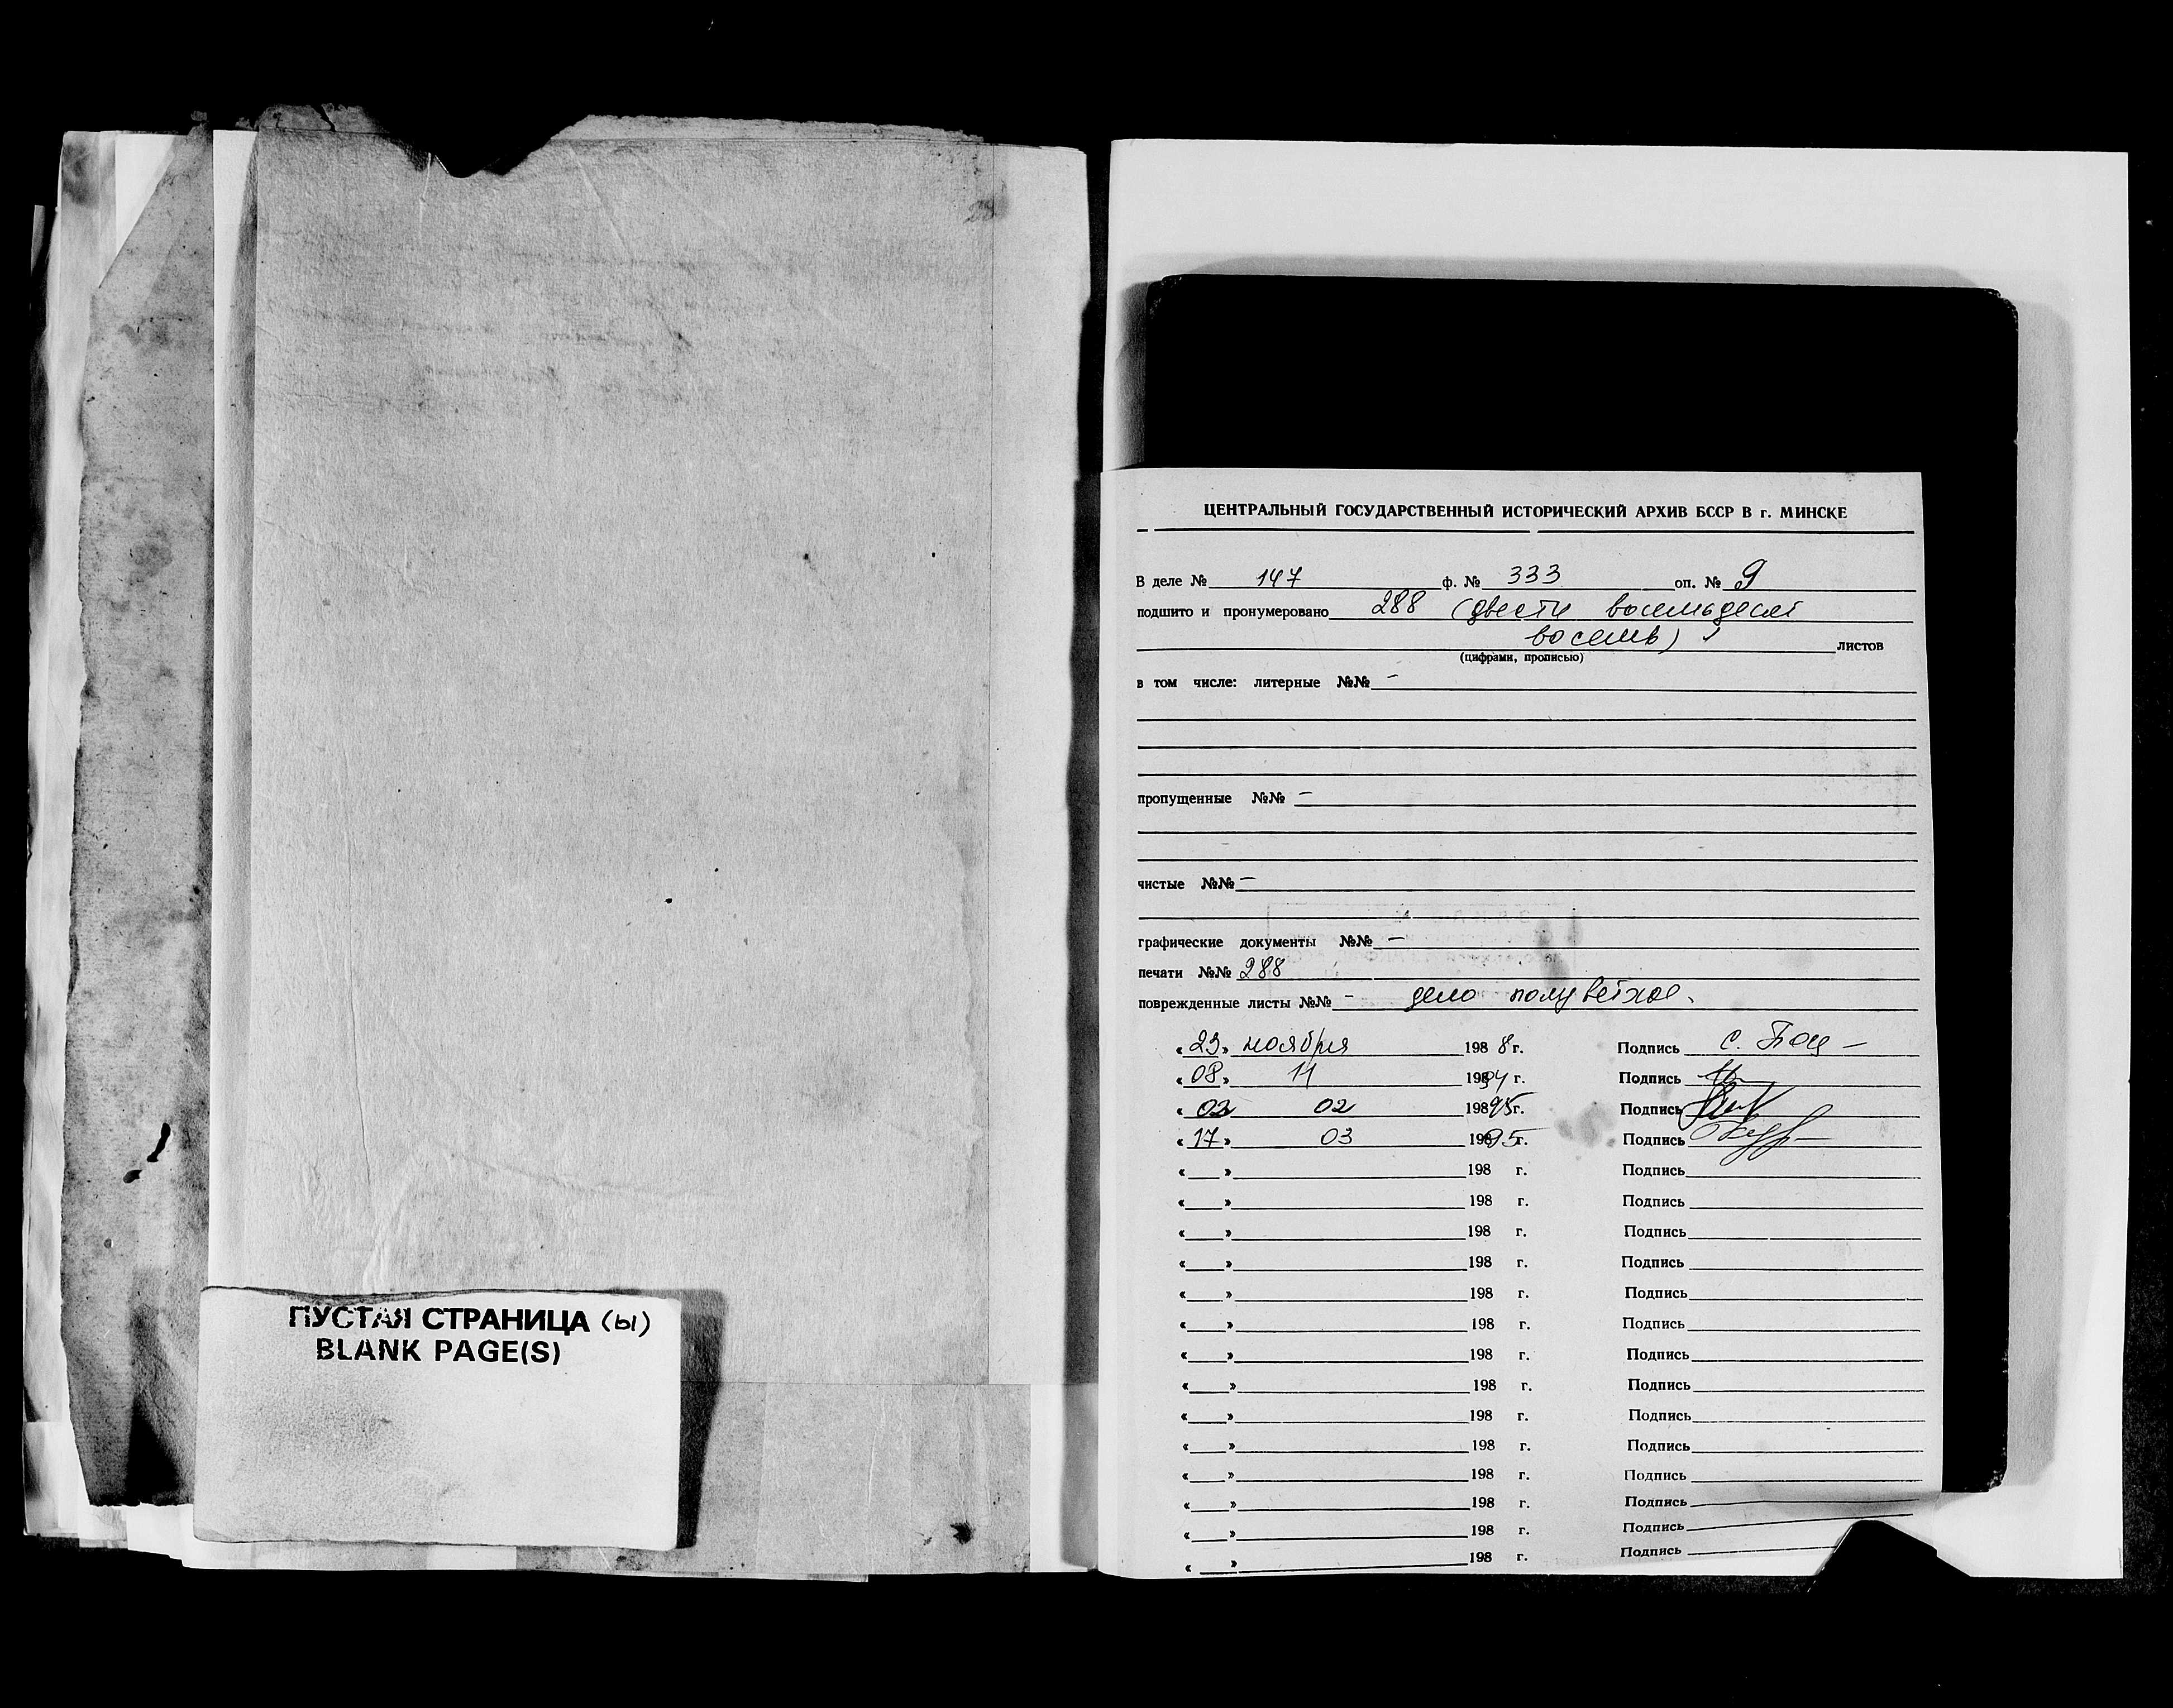 ПУСТАЯ СТРАНИЦА (ы)
BLANK PAGE(S)
ЦЕНТРАЛЬНЫЙ ГОСУДАРСТВЕННЫЙ ИСТОРИЧЕСКИЙ АРХИВ БССР В г. МИНСКЕ
В деле № 147 ф. № 333 оп. № 9
подшито и пронумеровано 288 (двести восемьдесят
восемь) листов
(цифрами, прописью)
в том числе: литерные №№ –
пропущенные №№ –
чистые №№ –
графические документы №№ –
печати №№ 288
поврежденные листы №№ – дело полуветхое.
« 23 » ноября 198 8 г. Подпись
« 08 » 11 19894 г. Подпись
« 02 » 02 19895 г. Подпись
« 17 » 03 19895 г. Подпись
« » 198 г. Подпись
« » 198 г. Подпись
« » 198 г. Подпись
« » 198 г. Подпись
« » 198 г. Подпись
« » 198 г. Подпись
« » 198 г. Подпись
« » 198 г. Подпись
« » 198 г. Подпись
« » 198 г. Подпись
« » 198 г. Подпись
« » 198 г. Подпись
« » 198 г. Подпись
« » 198 г. Подпись